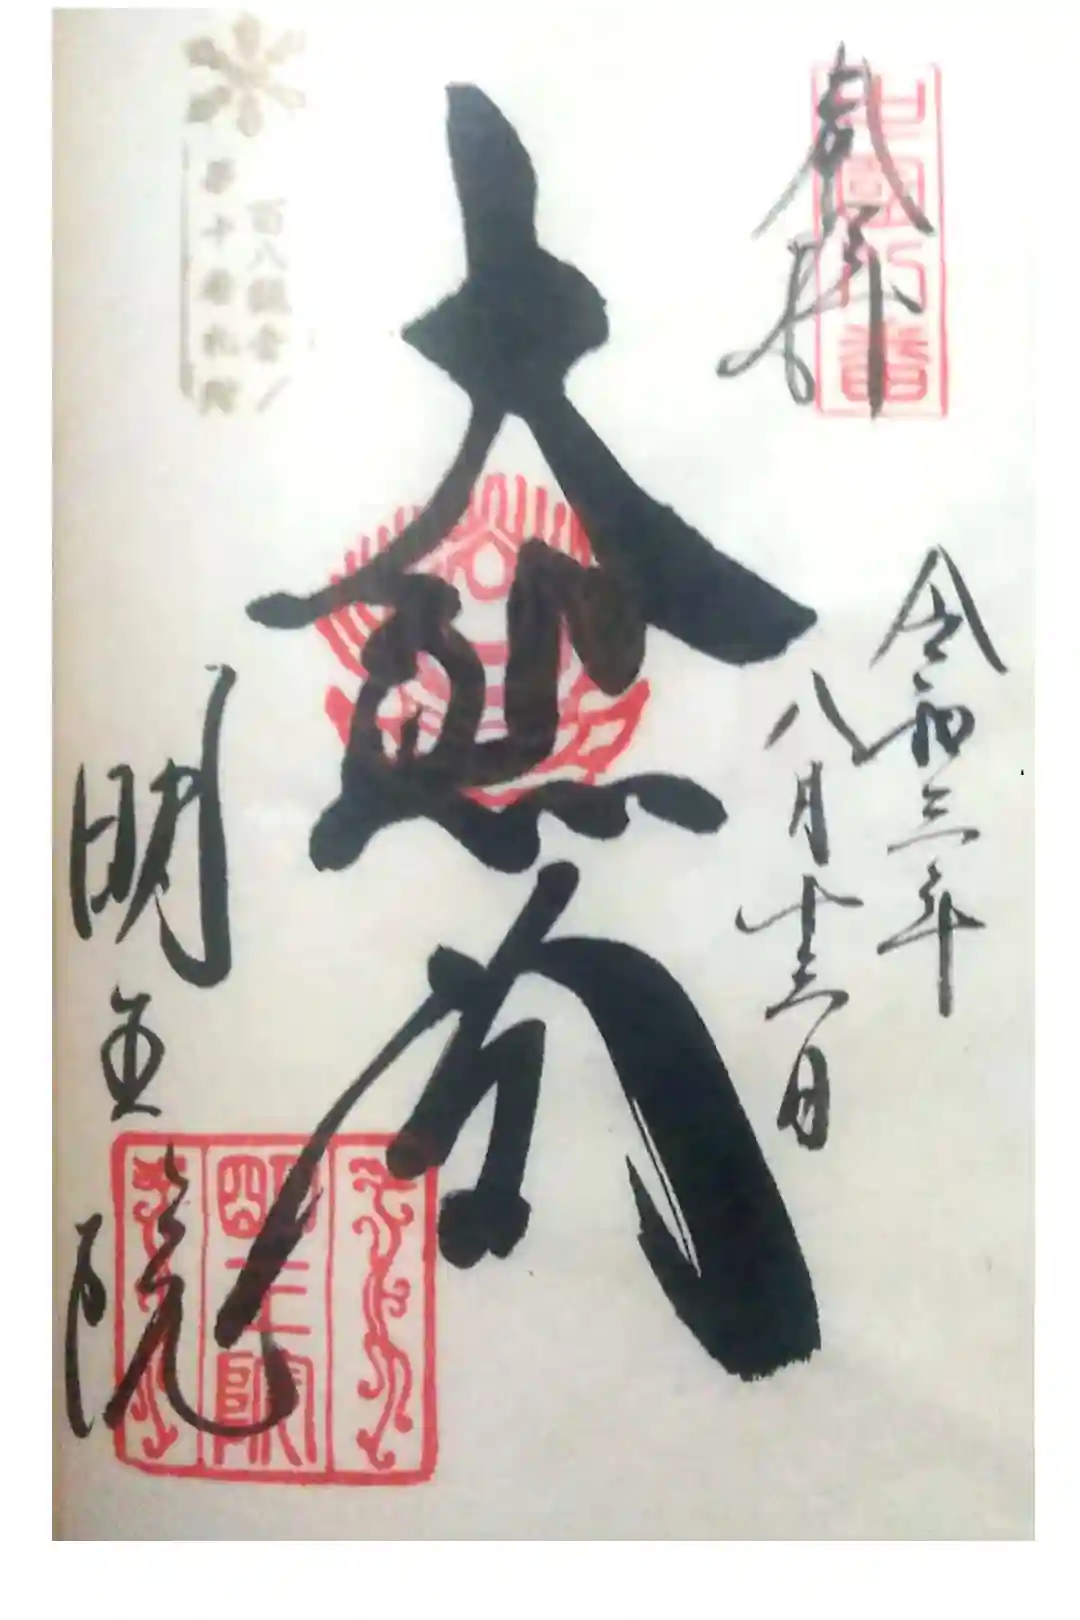 奉拝
中國八番
令和三年
八月十三日
大悲
明王院
明王院
百八観音ノ
第十番札所